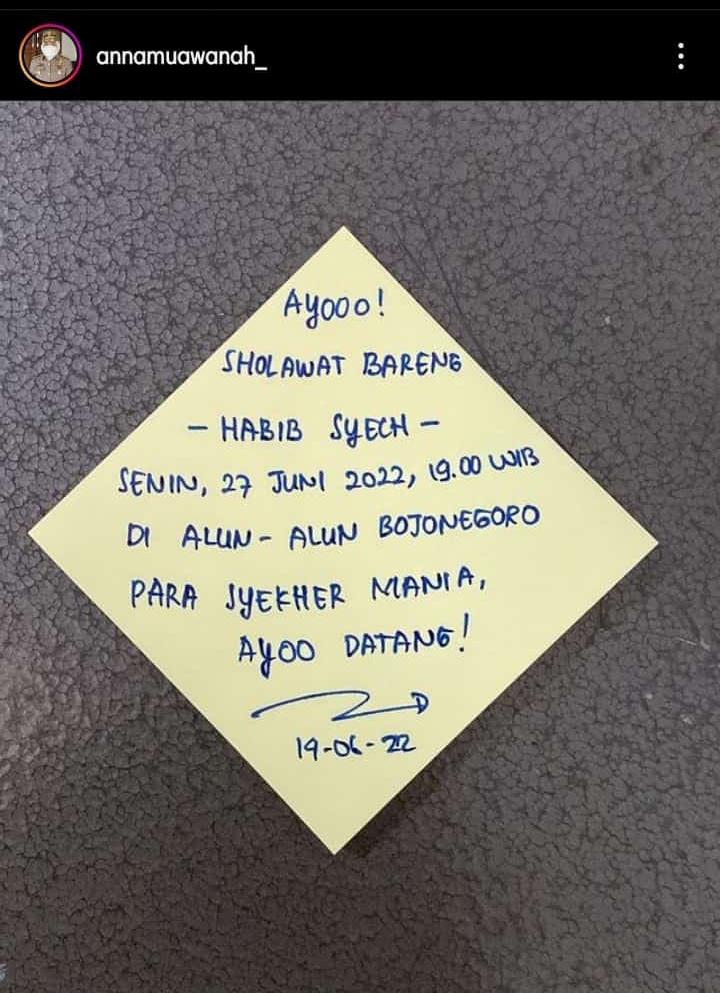 annamuawanah_
AYOOO!
SHOLAWAT BARENG
- HABIB SYECH -
SENIN, 27 JUNI 2022, 19.00 WIB
DI ALUN-ALUN BOJONEGORO
PARA SYEKHER MANIA,
AYOO DATANG!
19-06-22